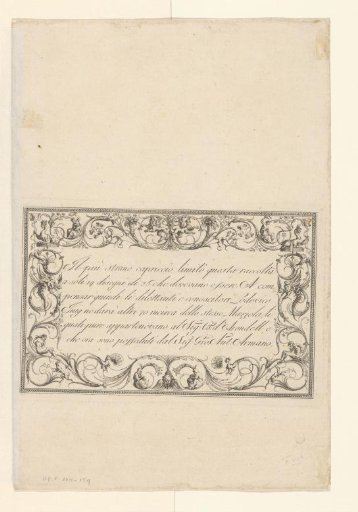 Il più strano capriccio limitò questa raccolta
a soli 19 disegni di 25 che dovevano essere. A com
pensar quindi li dilettanti e conoscitori Lodovico
Inig ne darà altri 10 ancora dello stesso Mazzola, li
quali pure appartenevano al Sig.
che ora sono posseduti dal Sig.